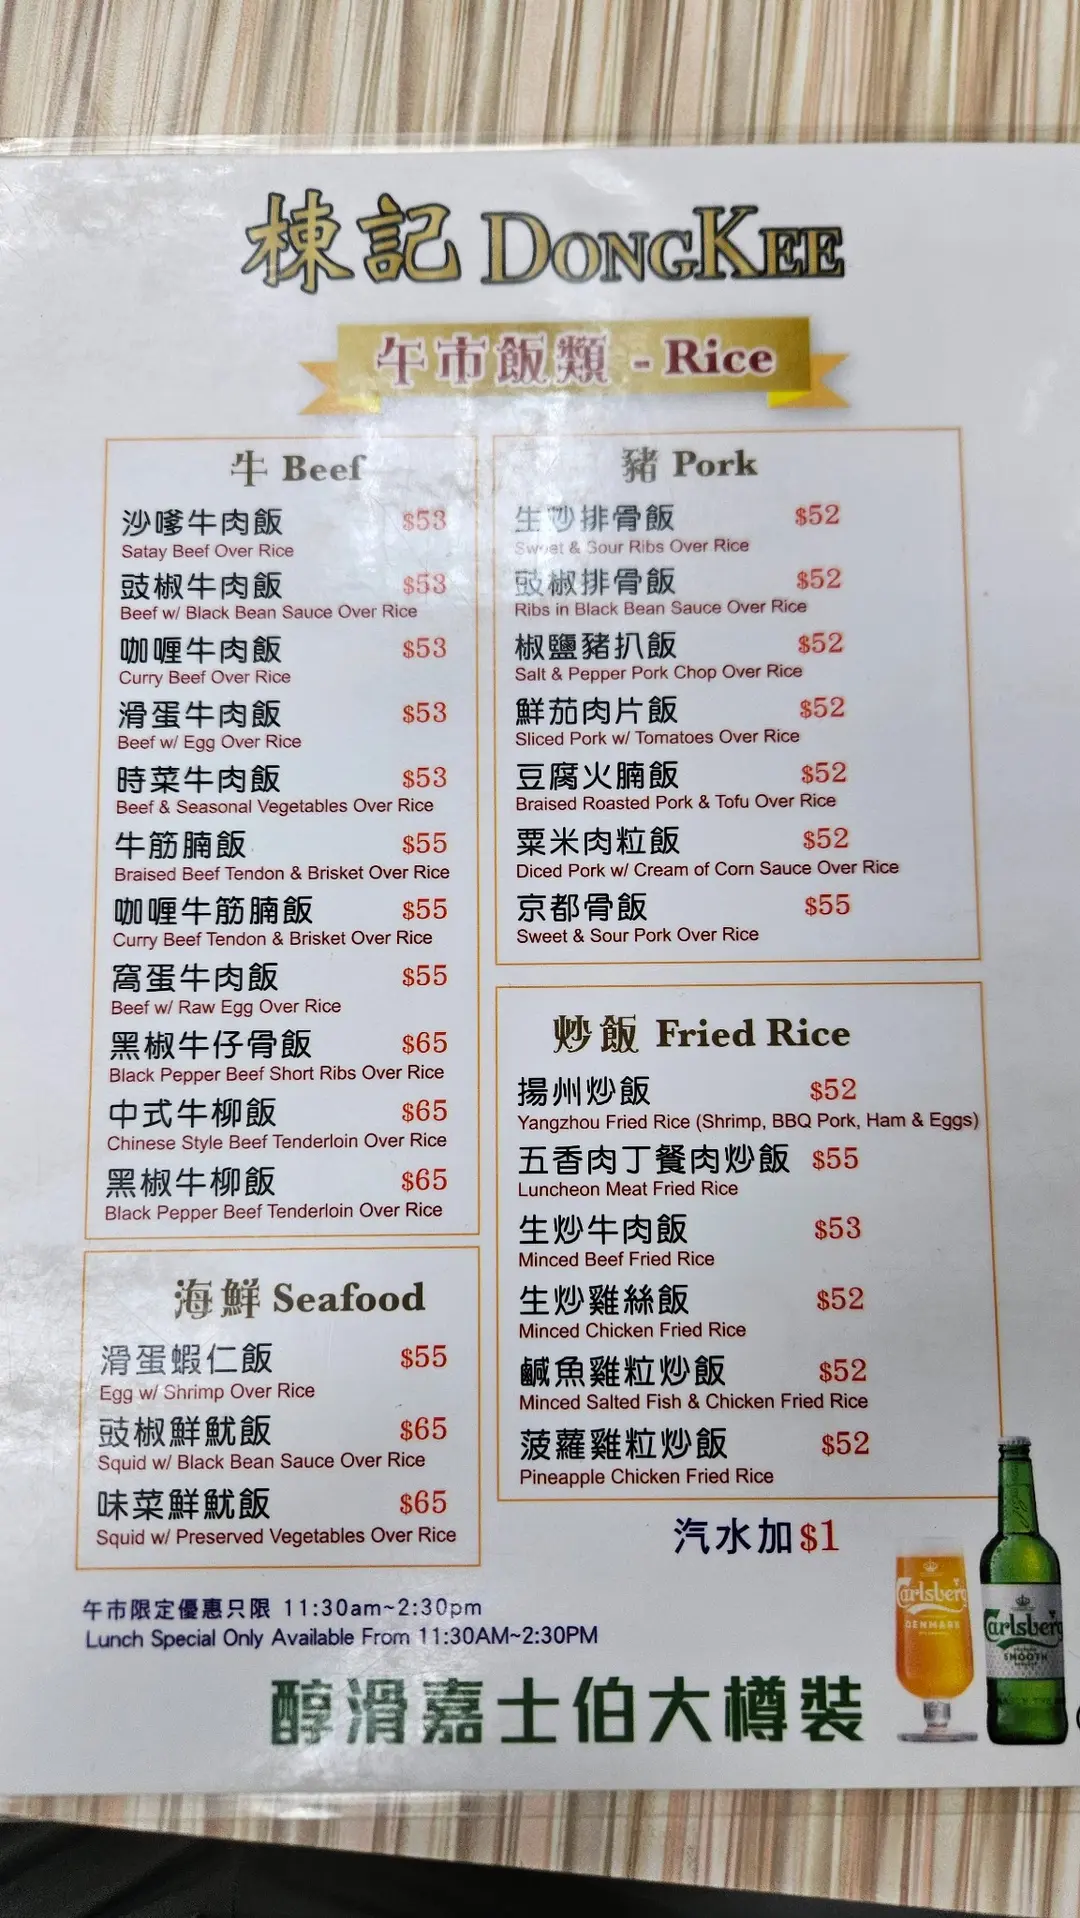 棟記 DONGKEE
午市飯類 - Rice
牛 Beef
沙嗲牛肉飯 $53
Satay Beef Over Rice
豉椒牛肉飯 $53
Beef w/ Black Bean Sauce Over Rice
咖喱牛肉飯 $53
Curry Beef Over Rice
滑蛋牛肉飯 $53
Beef w/ Egg Over Rice
時菜牛肉飯 $53
Beef & Seasonal Vegetables Over Rice
牛筋腩飯 $55
Braised Beef Tendon & Brisket Over Rice
咖喱牛筋腩飯 $55
Curry Beef Tendon & Brisket Over Rice
窩蛋牛肉飯 $55
Beef w/ Raw Egg Over Rice
黑椒牛仔骨飯 $65
Black Pepper Beef Short Ribs Over Rice
中式牛柳飯 $65
Chinese Style Beef Tenderloin Over Rice
黑椒牛柳飯 $65
Black Pepper Beef Tenderloin Over Rice
海鮮 Seafood
滑蛋蝦仁飯 $55
Egg w/ Shrimp Over Rice
豉椒鮮魷飯 $65
Squid w/ Black Bean Sauce Over Rice
味菜鮮魷飯 $65
Squid w/ Preserved Vegetables Over Rice
豬 Pork
生炒排骨飯 $52
Sweet & Sour Ribs Over Rice
豉椒排骨飯 $52
Ribs in Black Bean Sauce Over Rice
椒鹽豬扒飯 $52
Salt & Pepper Pork Chop Over Rice
鮮茄肉片飯 $52
Sliced Pork w/ Tomatoes Over Rice
豆腐火腩飯 $52
Braised Roasted Pork & Tofu Over Rice
粟米肉粒飯 $52
Diced Pork w/ Cream of Corn Sauce Over Rice
京都骨飯 $55
Sweet & Sour Pork Over Rice
炒飯 Fried Rice
揚州炒飯 $52
Yangzhou Fried Rice (Shrimp, BBQ Pork, Ham & Eggs)
五香肉丁餐肉炒飯 $55
Luncheon Meat Fried Rice
生炒牛肉飯 $53
Minced Beef Fried Rice
生炒雞絲飯 $52
Minced Chicken Fried Rice
鹹魚雞粒炒飯 $52
Minced Salted Fish & Chicken Fried Rice
菠蘿雞粒炒飯 $52
Pineapple Chicken Fried Rice
汽水加$1
午市限定優惠只限 11:30am~2:30pm
Lunch Special Only Available From 11:30AM~2:30PM
醇滑嘉士伯大樽裝
Carlsberg
DENMARK
Carlsberg
SMOOTH